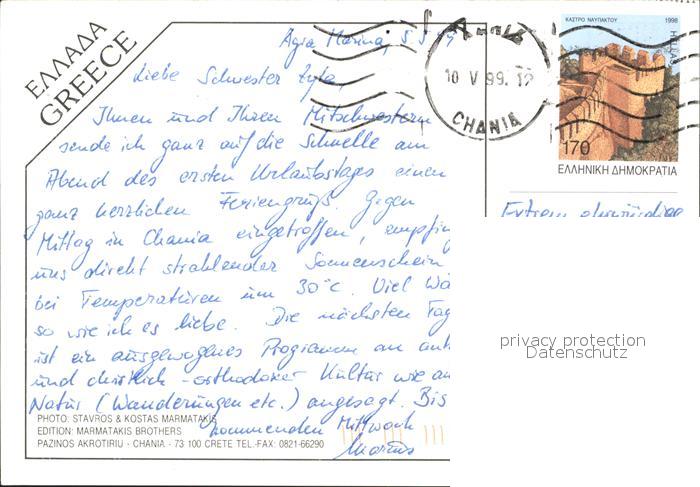 ΕΛΛΑΔΑ
GREECE
Agia Marina, 5.5.99
Liebe Schwester
Ihnen und Ihren Mitschwestern
sende ich ganz auf die Schnelle am
Abend des ersten Urlaubstages einen
ganz herzlichen Feriengruß. Gegen
Mittag in Chania eingetroffen, empfing
uns direkt strahlender Sonnenschein
bei Temperaturen um 30°C. Viel Wä
so wie ich es liebe. Die nächsten Tag
ist ein ausgewogenes Programm an ant
und christlich-orthodoxer Kultur wie an
Natur (Wanderungen etc.) angesagt. Bis
kommenden Mittwoch
Markus
PHOTO: STAVROS & KOSTAS MARMATAKIS
EDITION: MARMATAKIS BROTHERS
PAZINOS AKROTIRIU - CHANIA - 73 100 CRETE TEL.-FAX: 0821-66290
10 V 99. 12
CHANIA
ΚΑΣΤΡΟ ΝΑΥΠΑΚΤΟΥ 1998
HELLAS
170
ΕΛΛΗΝΙΚΗ ΔΗΜΟΚΡΑΤΙΑ
privacy protection
Datenschutz